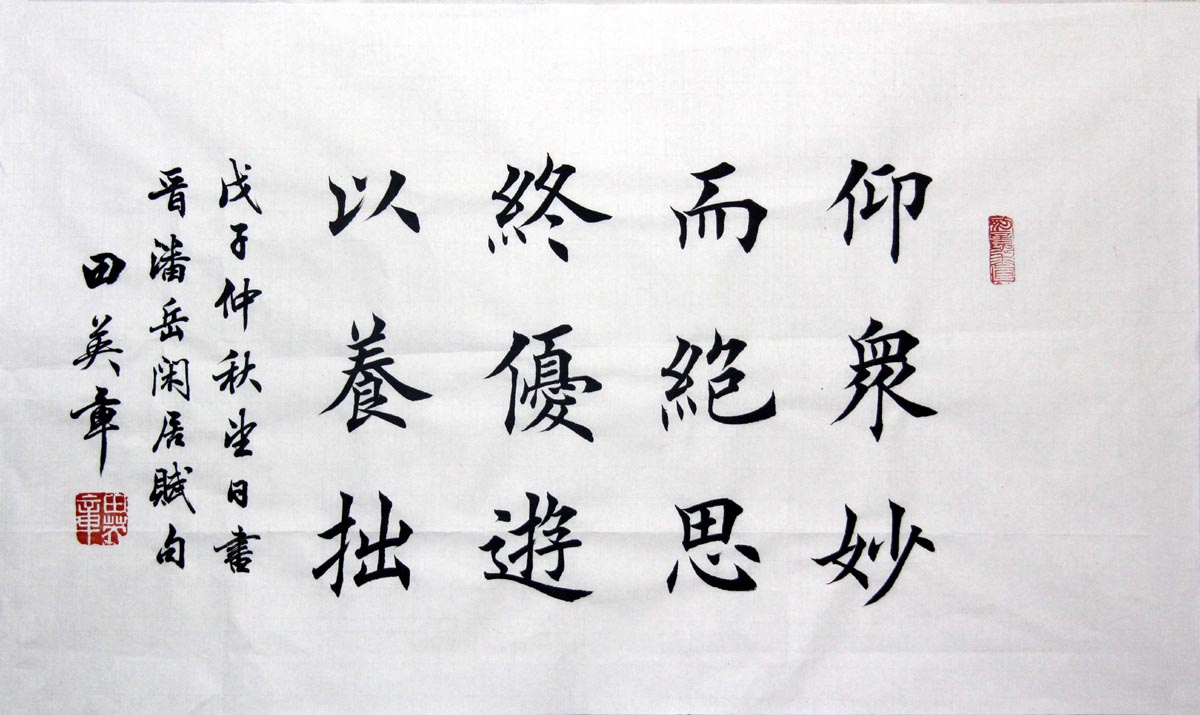 仰衆妙
而絕思
終優遊
以養拙
戊子仲秋望日書
晉潘岳閑居賦句
田英章
田英章